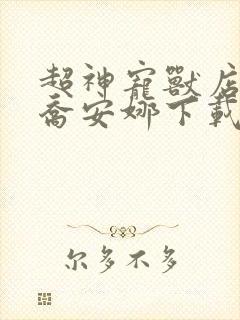 超神寵獸店
喬安娜下載
尔多不多